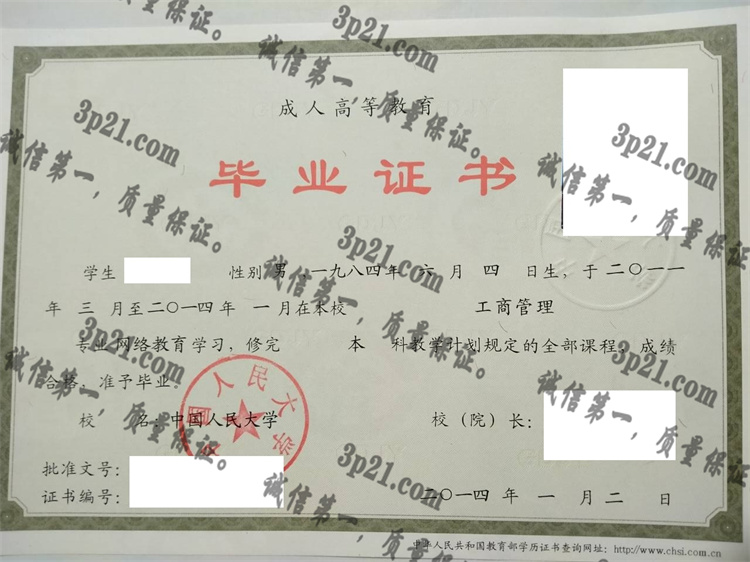 成人高等教育
毕业证书
学生 性别 男 ,一九八四年 六 月 四 日生，于 二〇一一
年 三 月至二〇一四年 一 月在本校 工商管理
专业 网络教育学习，修完 本 科教学计划规定的全部课程，成绩
合格，准予毕业
校 名：中国人民大学 校（院）长：
批准文号：
证书编号： 二〇一四 年 一 月 二 日
中华人民共和国教育部学历证书查询网址：http://www.chsi.com.cn
国人民大学
3p21.com
诚信第一，质量保证。
3p21.com
诚信第一，质量保证。
3p21.com
诚信第一，质量保证。
3p21.com
诚信第一，质量保证。
3p21.com
诚信第一，质量保证。
3p21.com
诚信第一，质量保证。